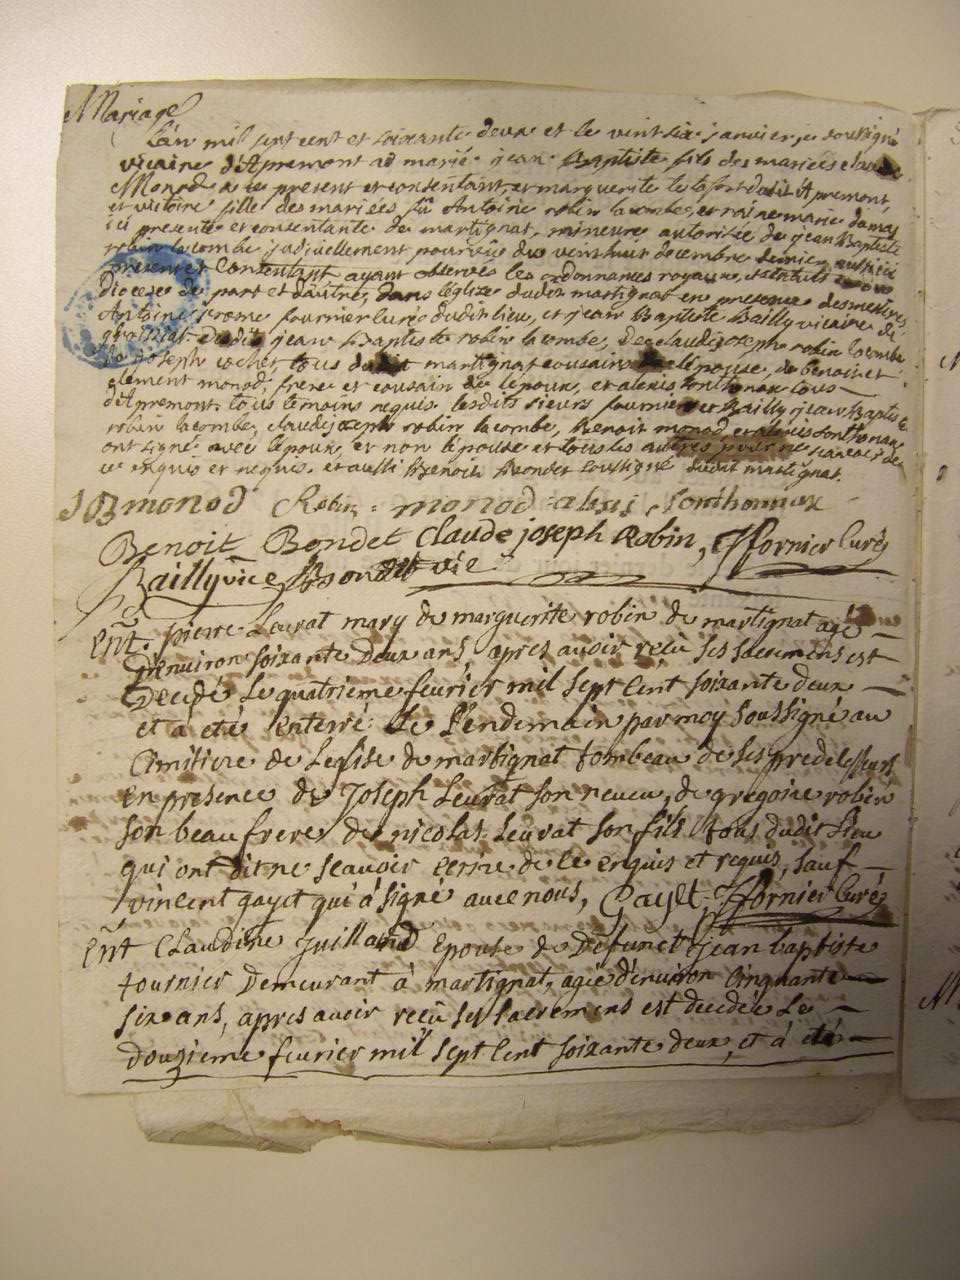 Mariage
L'an mil sept cent et soixante deux et le vint six janvier je soussigné
vicaire d'Apremont ad marié jean Baptiste fils des mariées claude
Monod ici present et consentant, et marguerite testafort dudit Apremont,
et victoire fille des mariées fû Antoine robin lacombe, et raine marie damas
ici presente et consentante de martignat, mineure autorisée de jean Baptiste
robin lacombe judiciellement pourvëue du vint huit decembre dernier aussi ici
present et Consentant ayant observés les ordonnances royaux, et statuts du
diocese de part et d'autre, dans l'églize dudit martignat en presence des messires
Antoine jerome fournier curé dudit lieu, et jean Baptiste Bailly vicaire de
groissiat dudit jean Baptiste robin lacombe, De claudejoseph robin lacombe
de joseph cochet, tous dudit martignat cousains de l'épouse, de benoit et
clement monod, frere et cousain de l'époux, et alexis sonthonax tous
d'Apremont. tous temoins requis. lesdits sieurs fournier et Bailly, jean Baptiste
robin lacombe, claudejoseph robin lacombe, Benoit monod, et alexis sonthonax
ont signé avec l'époux, et non l'épouse et tous les autres pour ne sçavoir de
ce enquis et requis. et aussi Benoit Bondet soussigné dudit martignat.
J B monod Robin monod alexis Sonthonnax
Benoit Bondet Claude joseph Robin, Ffornier Curé
Bailly vice Bondet vic
Ent. pierre Levrat mary de marguerite robin de martignat agé
d'environ soixante Deux ans, apres avoir reçû ses sacremens est
Decedé Le quatrieme fevrier mil sept Cent soixante deux
et à eté enterré Le Lendemain par moy Soussigné au
Cimitiere de Leglise de martignat tombeau de ses predecesseurs
en presence de Joseph Levrat son neveu, de gregoire robin
son beau frere, de nicolas Levrat son fils tous dudit Lieu
qui ont dit ne scavoir ecrire de ce enquis et requis, sauf
vincent gayet qui à signé avec nous, Gayet, Ffornier Curé
Ent Claudine Juilland Epouse de Defunct jean baptiste
tournier Demeurant à martignat, agée d'environ Cinquante
six ans, apres avoir reçû ses sacremens est decedée Le
douzieme fevrier mil sept Cent soixante deux, et à été